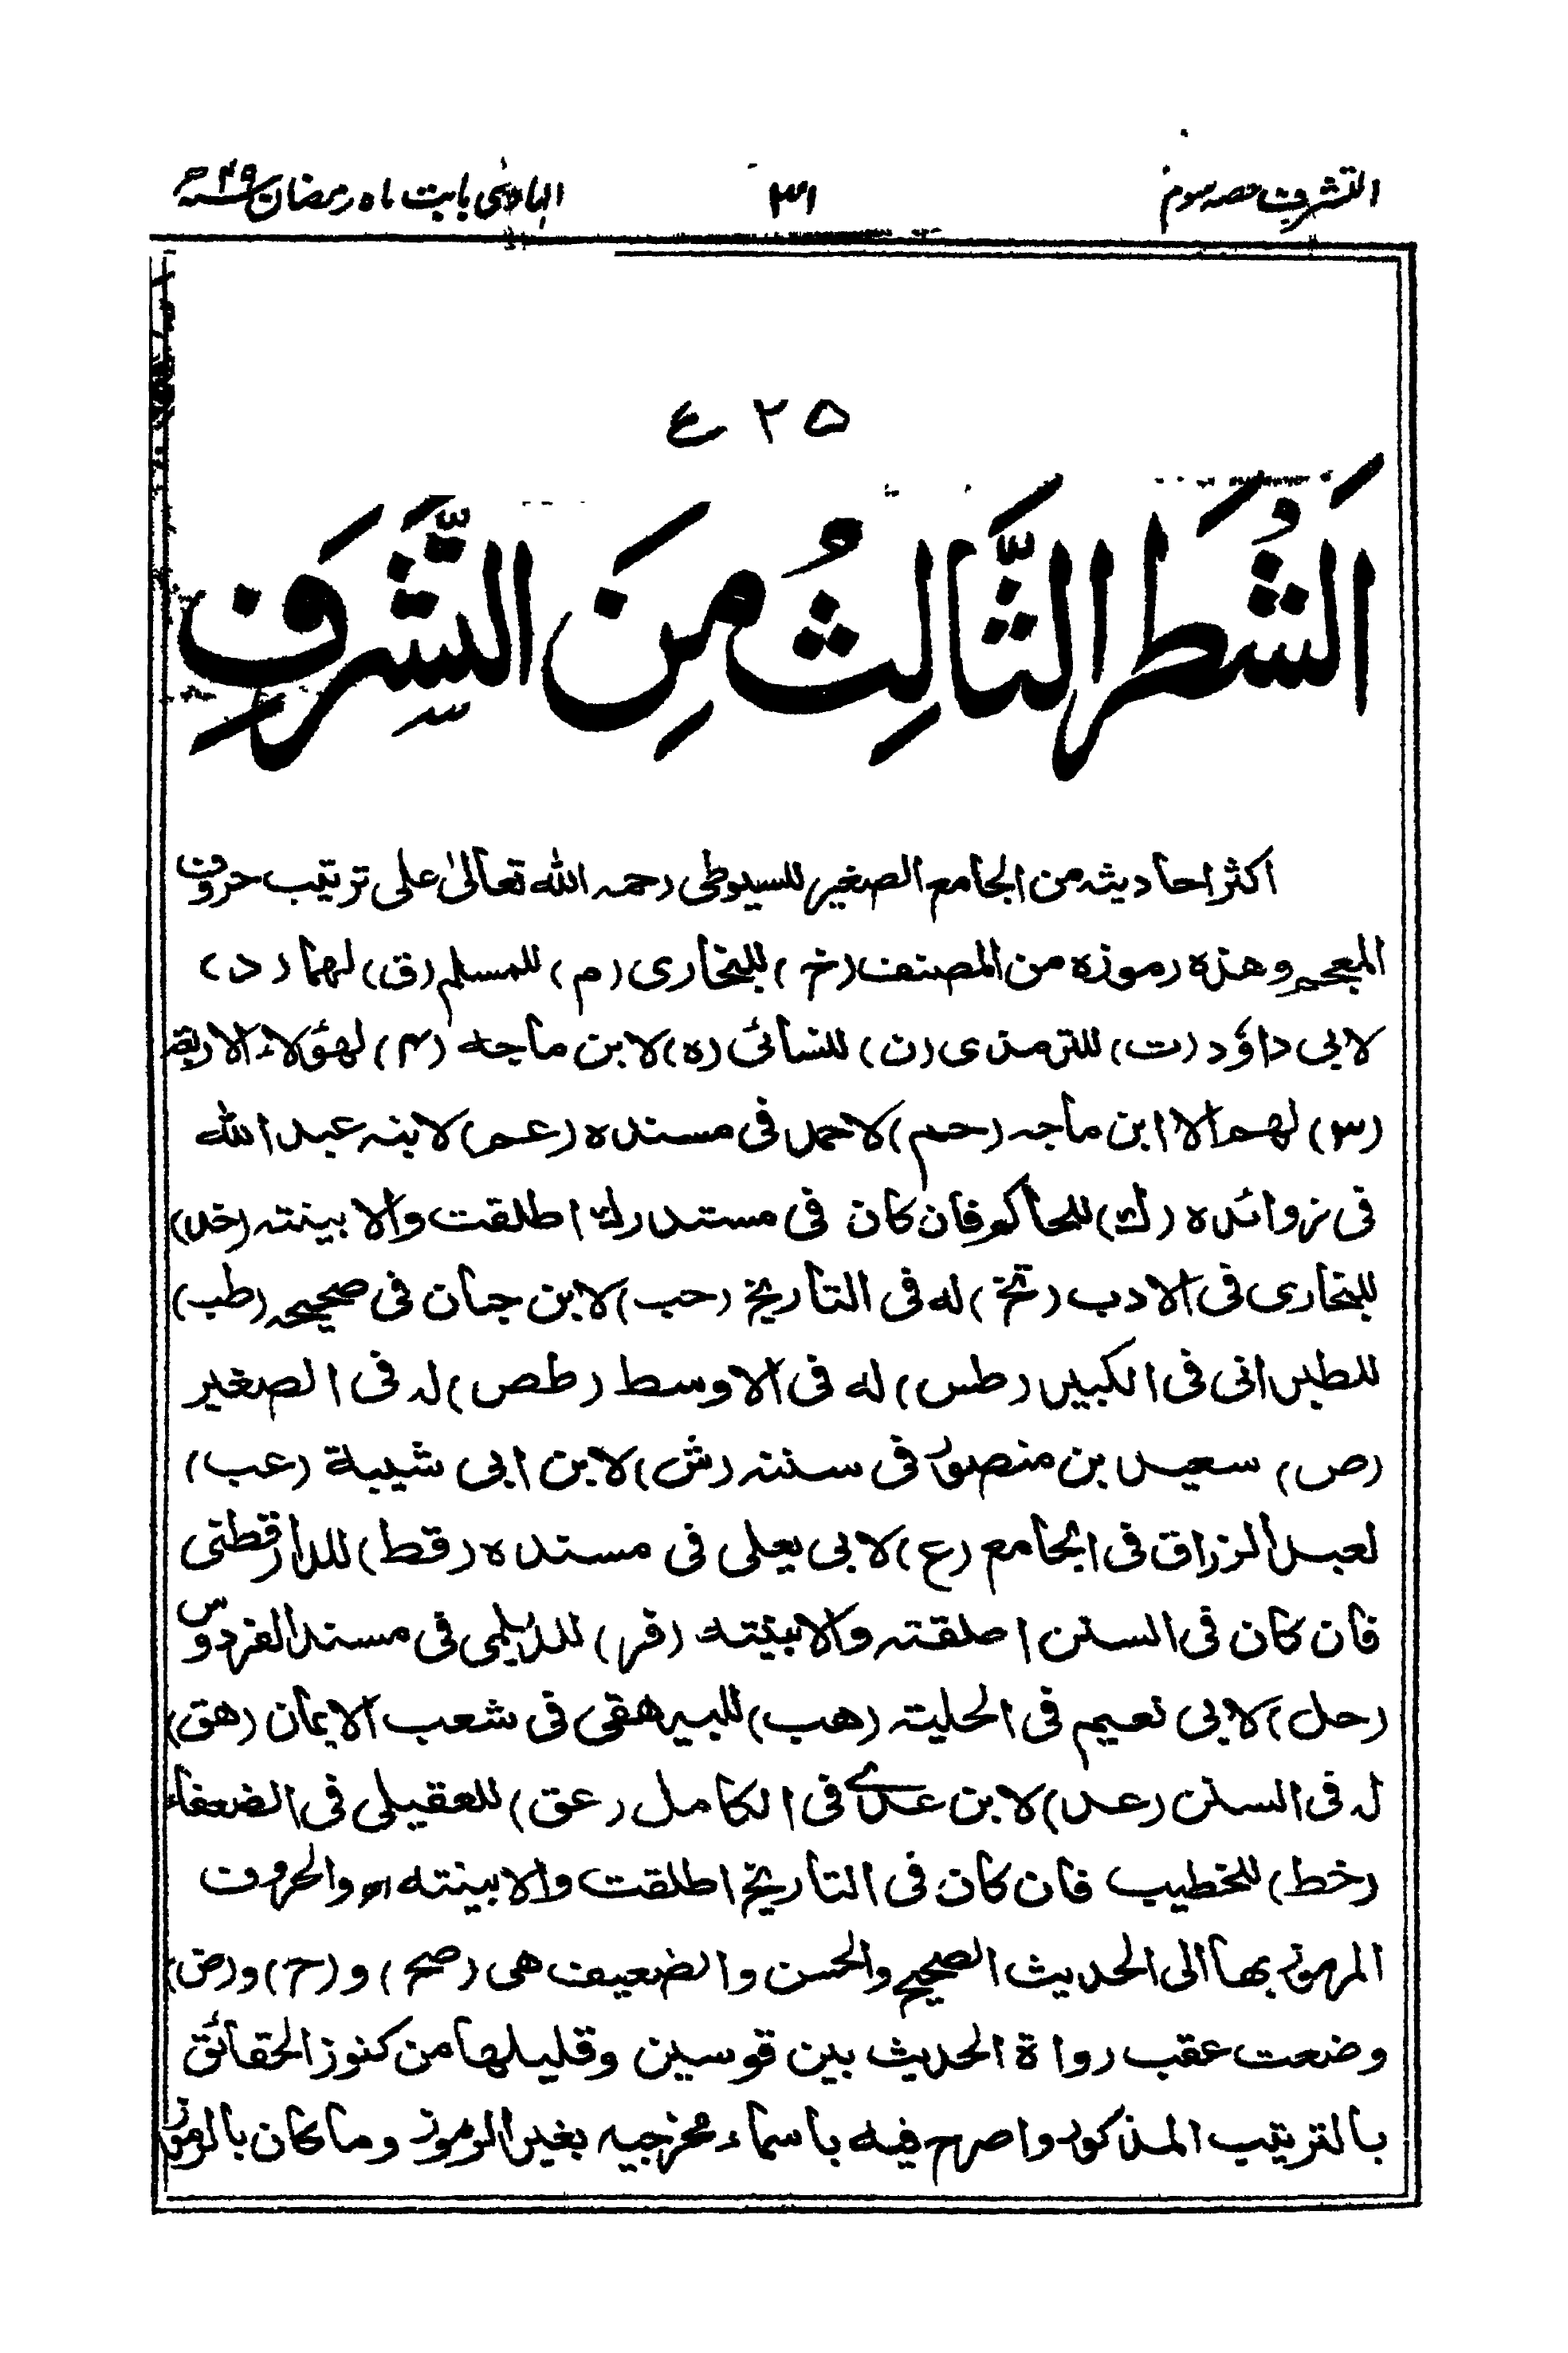 التشرف حصہ سوم
۳۱
الہادی بابت ماہ رمضان ۴۹ھ
۲۵ ع
اَلشَّطَرُ الثَّالِثُ مِنَ التَّشَرُّفِ
اکثر احادیثہ من الجامع الصغیر للسیوطی رحمہ اللہ تعالیٰ علی ترتیب حروف
المعجم وھذہ رموزہ من المصنف (خ) للبخاری (م) للمسلم (ق) لھما (د)
لابی داؤد (ت) للترمذی (ن) للنسائی (ہ) لابن ماجہ (۴) لھؤلاء الاربعۃ
(۳) لھم الا ابن ماجہ (حم) لاحمد فی مسندہ (عم) لابنہ عبداللہ
فی زوائدہ (ک) للحاکم فان کان فی مستدرک اطلقت والا بینتہ (خد)
للبخاری فی الادب (تخ) لہ فی التاریخ (حب) لابن حبان فی صحیحہ (طب)
للطبرانی فی الکبیر (طس) لہ فی الاوسط (طص) لہ فی الصغیر
(ص) سعید بن منصور فی سننہ (ش) لابن ابی شیبۃ (عب)
لعبد الرزاق فی الجامع (ع) لابی یعلی فی مسندہ (قط) للدارقطنی
فان کان فی السنن اطلقتہ والا بینتہ (فر) للدیلمی فی مسند الفردوس
(حل) لابی نعیم فی الحلیتہ (ھب) للبیھقی فی شعب الایمان (ھق)
لہ فی السنن (عد) لابن عدی فی الکامل (عق) للعقیلی فی الضعفاء
(خط) للخطیب فان کان فی التاریخ اطلقت والا بینتہ اھ والحروف
المرموز بھا الی الحدیث الصحیح والحسن والضعیف ھی (صح) و (ح) و (ض)
وضعت عقب رواۃ الحدیث بین قوسین وقلیلھا من کنوز الحقائق
بالترتیب المذکور واصرح فیہ باسماء مخرجیہ بغیر الرموز وما کان بالرموز